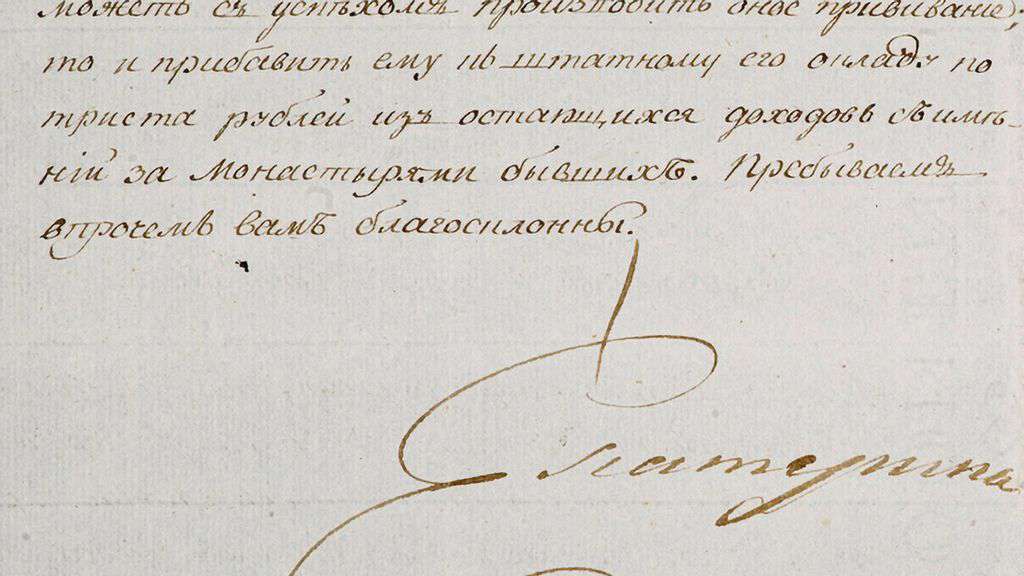 можетъ съ успѣхомъ производить оное прививаніе;
то и прибавить ему къ штатному его окладу по
триста рублей изъ остающихся доходовъ съ имѣ-
ній за монастырями бывшихъ. Пребываемъ
впрочемъ вамъ благосклонны.
Екатерина